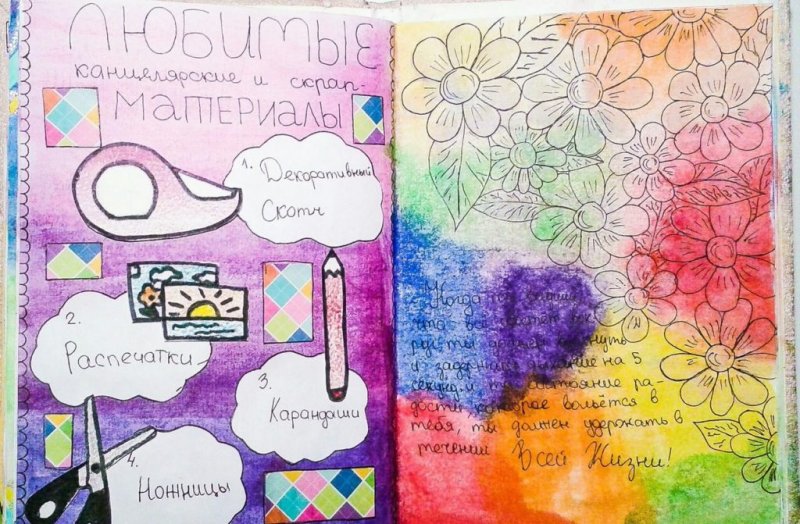 ЛЮБИМЫЕ
канцелярские и скрап-
МАТЕРИАЛЫ
1. Декоративный
Скотч
2.
Распечатки
3.
Карандаши
4.
Ножницы
- Когда ты
что все
ты должен
и задержи дыхание на 5
секунд, и то состояние ра-
дости, которое вольётся в
тебя, ты должен удержать в
течении Всей Жизни!